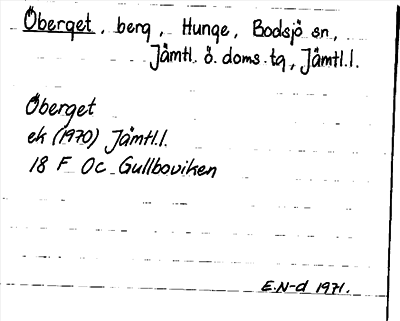 Öberget, berg, Hunge, Bodsjö sn,
Jämtl. ö. doms.tg, Jämtl.l.
Öberget
ek (1970) Jämtl.l.
18 F Oc Gullboviken
E.N-d 1971.